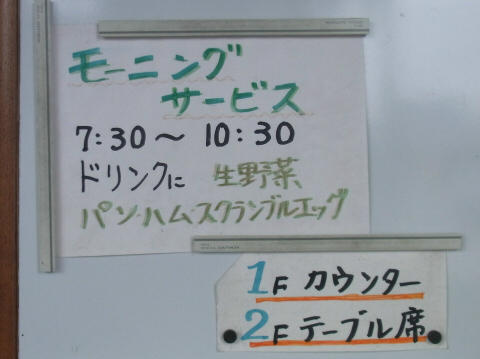 モーニング
サービス
7:30〜10:30
ドリンクに 生野菜
パン・ハム・スクランブルエッグ
1F カウンター
2F テーブル席